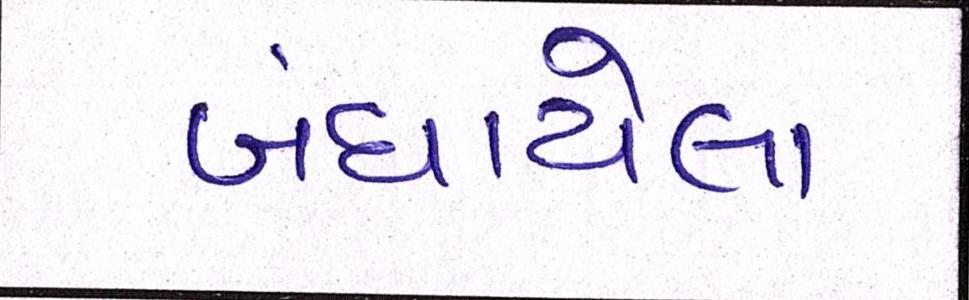 બંધાયેલા